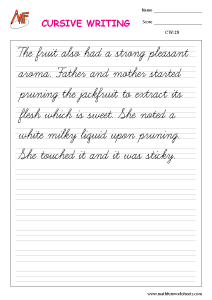 MF
CURSIVE WRITING
Name
Score
CW:19
The fruit also had a strong pleasant
aroma. Father and mother started
pruning the jackfruit to extract its
flesh which is sweet. She noted a
white milky liquid upon pruning.
She touched it and it was sticky.
www.mathfunworksheets.com